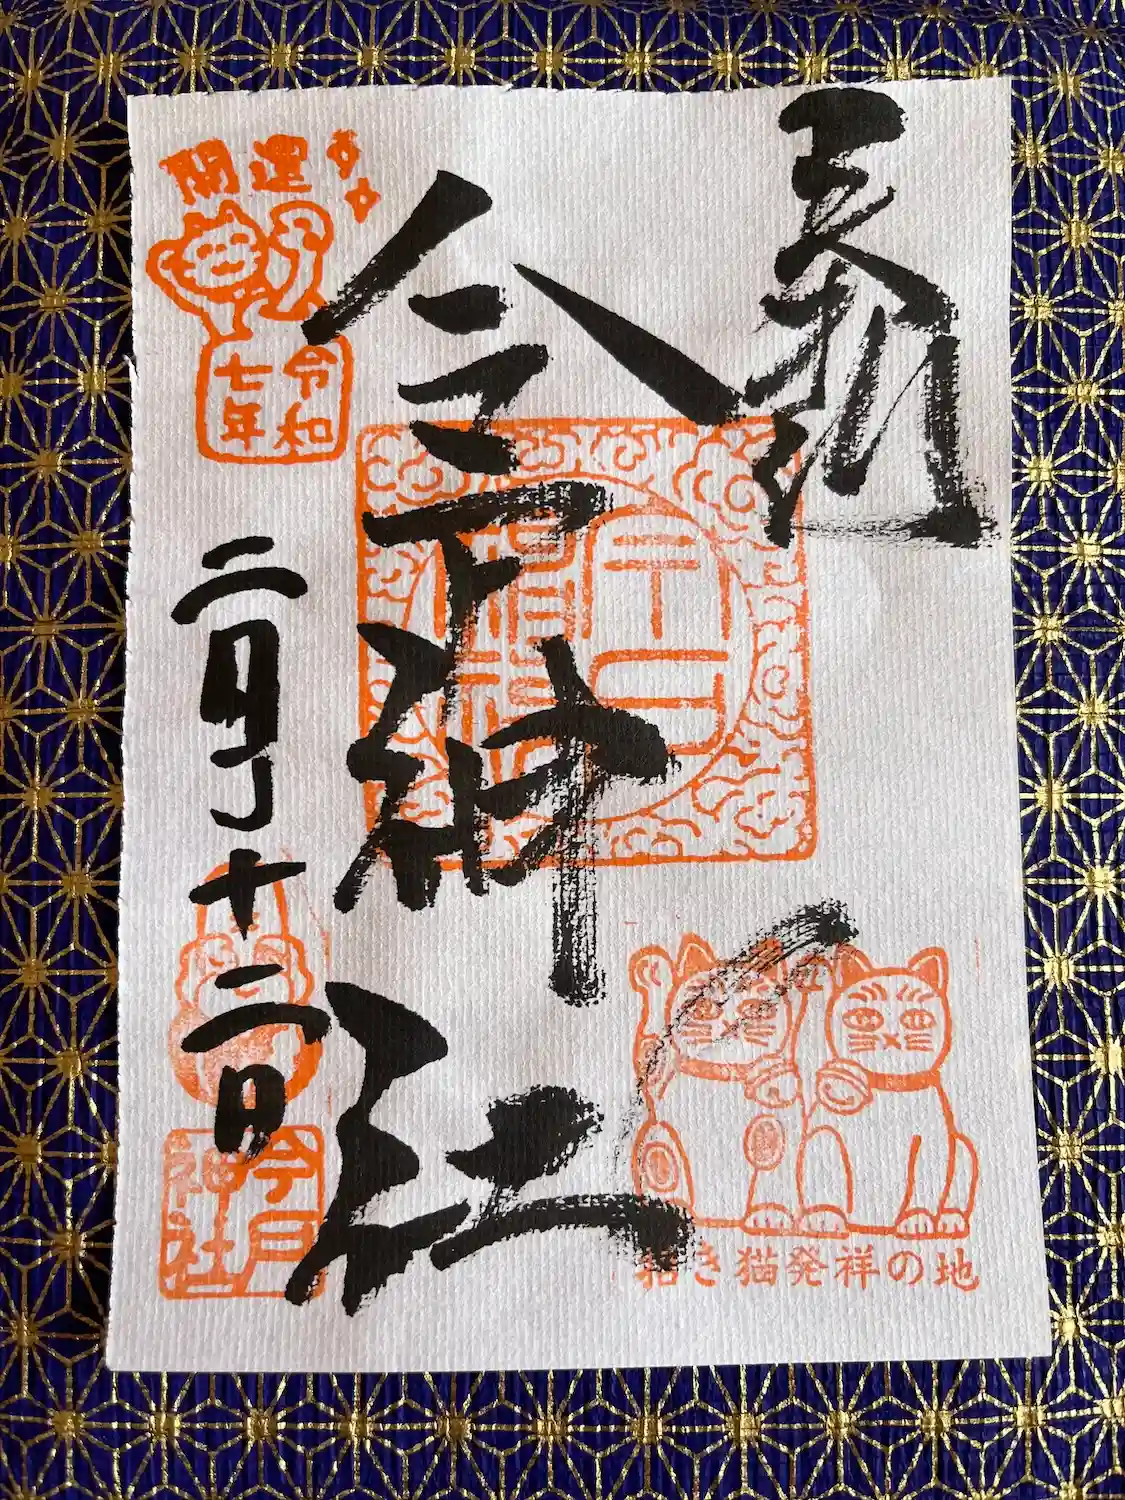 奉拝
今戸神社
開運
令和
七年
二月十二日
今戸
神社
招き猫発祥の地